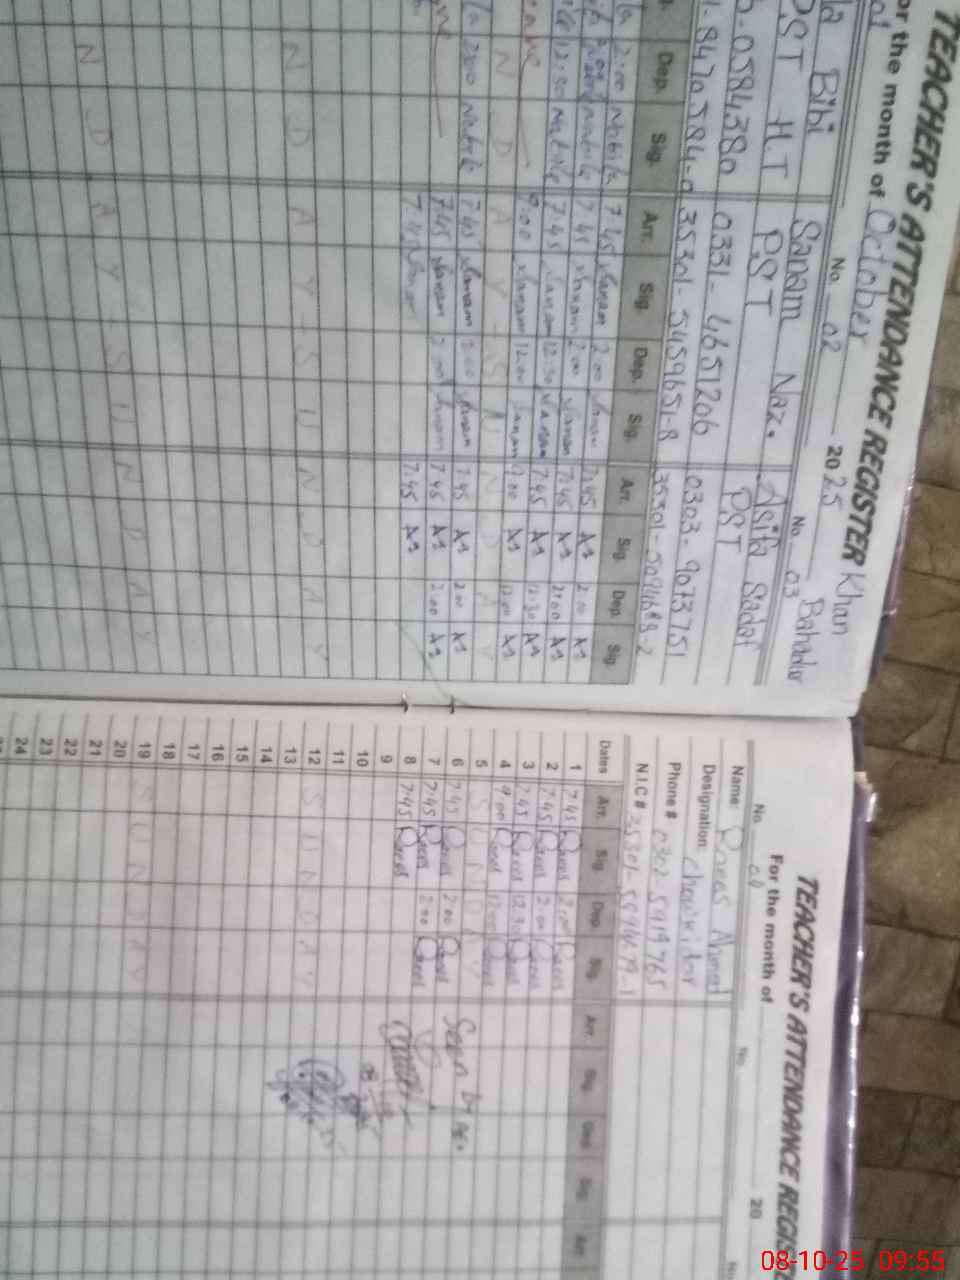 TEACHER'S ATTENDANCE REGISTER Khan
or the month of October 2025 Bahadur
No. 02 No. 03
Bibi Sanam Naz. Asifa Sadaf
PST H.T PST PST
0584380 0331-4651206 0303-9073751
8470584-0 35301-5459651-8 35301-5094688-2
Dep. Sig. Arr. Sig. Dep. Sig. Arr. Sig. Dep. Sig.
2:00 Nabila 7:45 Sanam 2:00 Sanam 7:45 AS 2:00 AS
2:00 Nabila 7:45 Sanam 2:00 Sanam 7:45 AS 2:00 AS
12:30 Nabila 7:45 Sanam 12:30 Sanam 7:45 AS 12:30 AS
9:00 Sanam 12:00 Sanam 9:00 AS 12:00 AS
N D A Y - S U N D A Y
2:00 Nabila 7:45 Sanam 2:00 Sanam 7:45 AS 2:00 AS
7:45 Sanam 2:00 Sanam 7:45 AS 2:00 AS
7:45 Sanam 7:45 AS
N D A Y - S U N D A Y
N D A Y - S U N D A Y
TEACHER'S ATTENDANCE REGISTE
For the month of 20
No. 04 No. No.
Name: Raees Ahmed
Designation: Chowkidar
Phone # 0302-5919765
N.I.C #
Dates Arr. Sig. Dep. Sig. Arr. Sig. Dep. Sig. Arr.
1 7:45 Raees 2:00 Raees
2 7:45 Raees 2:00 Raees
3 7:45 Raees 12:30 Raees
4 9:00 Raees 12:00 Raees
5 S U N D A Y
6 7:45 Raees 2:00 Raees Seen by AEO
7 7:45 Raees 2:00 Raees
8 7:45 Raees
9
10
11
12 S U N D A Y
13
14
15
16
17
18
19 S U N D A Y
20
21
22
23
24
08-10-25 09:55